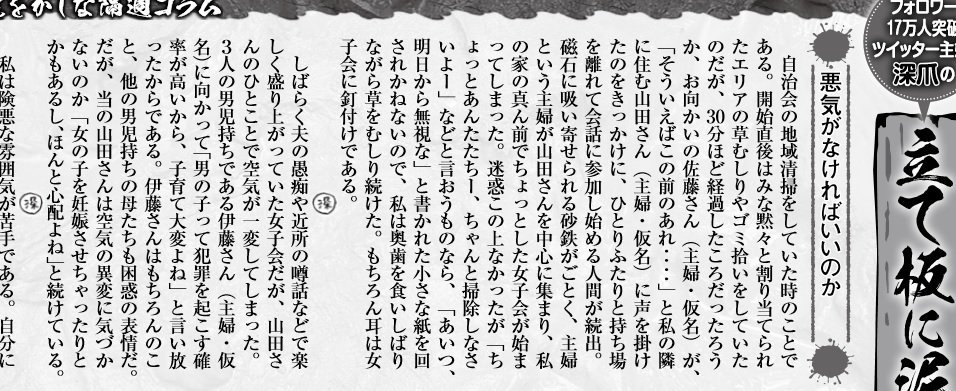 をかしな隔週コラム
フォロワー
17万人突破
ツイッター主
深爪の
立て板に泥
悪気がなければいいのか
自治会の地域清掃をしていた時のことで
ある。開始直後はみな黙々と割り当てられ
たエリアの草むしりやゴミ拾いをしていた
のだが、30分ほど経過したころだったろう
か、お向かいの佐藤さん（主婦・仮名）が、
「そういえばこの前のあれ・・・」と私の隣
に住む山田さん（主婦・仮名）に声を掛け
たのをきっかけに、ひとりふたりと持ち場
を離れて会話に参加し始める人間が続出。
磁石に吸い寄せられる砂鉄がごとく、主婦
という主婦が山田さんを中心に集まり、私
の家の真ん前でちょっとした女子会が始ま
ってしまった。迷惑この上なかったが「ち
ょっとあんたたちー、ちゃんと掃除しなさ
いよー」などと言おうものなら、「あいつ、
明日から無視な」と書かれた小さな紙を回
されかねないので、私は奥歯を食いしばり
ながら草をむしり続けた。もちろん耳は女
子会に釘付けである。
深
しばらく夫の愚痴や近所の噂話などで楽
しく盛り上がっていた女子会だが、山田さ
んのひとことで空気が一変してしまった。
3人の男児持ちである伊藤さん（主婦・仮
名）に向かって「男の子って犯罪を起こす確
率が高いから、子育て大変よね」と言い放
ったからである。伊藤さんはもちろんのこ
と、他の男児持ちの母たちも困惑の表情だ。
だが、当の山田さんは空気の異変に気づか
ないのか「女の子を妊娠させちゃったりと
かもあるし、ほんと心配よね」と続けている。
深
私は険悪な雰囲気が苦手である。自分に